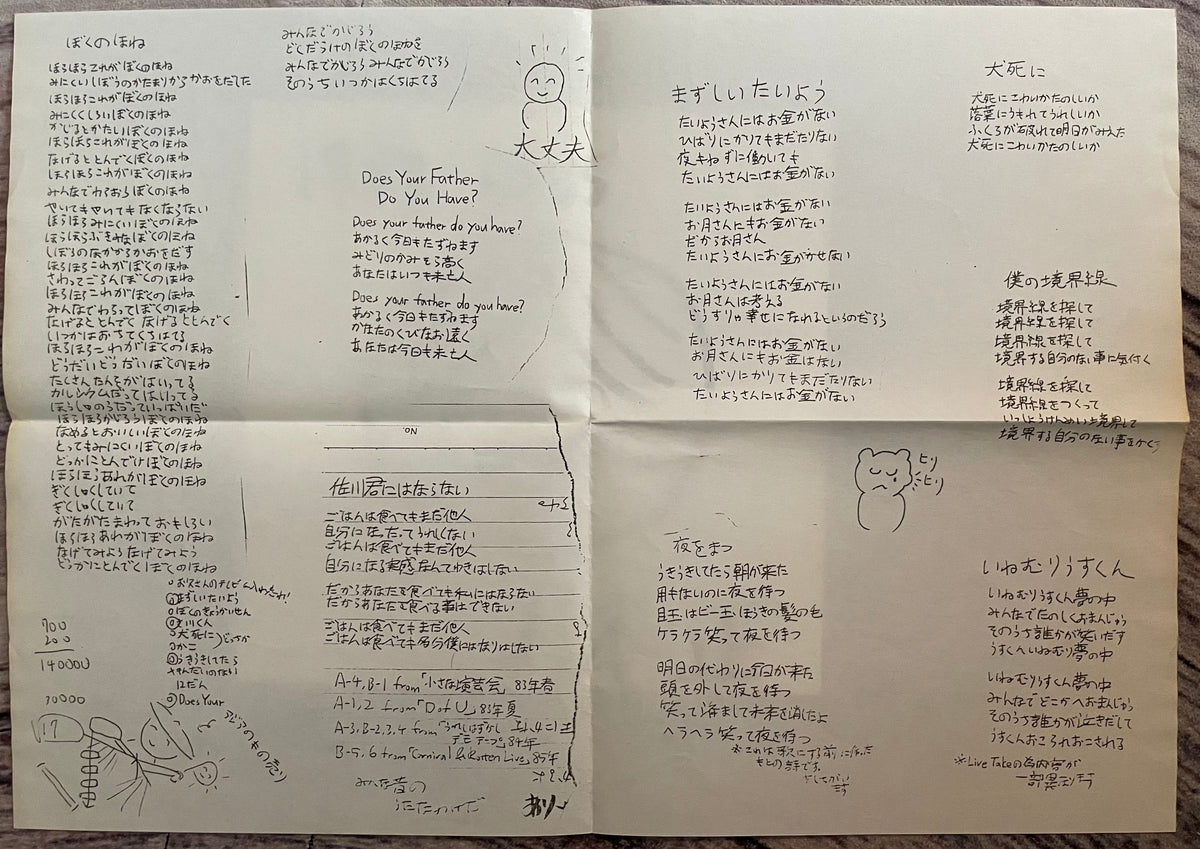 ぼくのほね
ほらほらこれがぼくのほね
みにくいしぼうのかたまりからかおをだした
ほらほらこれがぼくのほね
みにくくしろいぼくのほね
かじるとかたいぼくのほね
ほらほらこれがぼくのほね
なげるととんでくぼくのほね
ほらほらこれがぼくのほね
みんなでわらおうぼくのほね
やいてもやいてもなくならない
ほらほらみにくいぼくのほね
ほらほらぶきみなぼくのほね
しぼうのなかからかおをだす
ほらほらこれがぼくのほね
さわってごらんぼくのほね
ほらほらこれがぼくのほね
みんなでわらってぼくのほね
なげるととんでく なげるととんでく
いつかはおちてくちはてる
ほらほらこれがぼくのほね
どうだいどうだいぼくのほね
たくさんたんそがはいってる
カルシウムだってはいってる
ほうしゃのうだっていっぱいだ
ほらほらかじろうぼくのほね
なめるとおいしいぼくのほね
とってもみにくいぼくのほね
どっかにとんでけぼくのほね
ほらほらあれがぼくのほね
ぎくしゃくしていて
ぎくしゃくしていて
がたがたまわっておもしろい
ほらほらあれがぼくのほね
なげてみようなげてみよう
どっかにとんでくぼくのほね
みんなでかじろう
どくだらけのぼくのほねを
みんなでかじろうみんなでかじろう
そのうちいつかはくちはてる
大丈夫
Does Your Father
Do You Have?
Does your father do you have?
あかるく今日もたずねます
みどりのかみそら高く
あなたはいつも未亡人
Does your father do you have?
あかるく今日もたずねます
かなたのくびなお遠く
あなたは今日も未亡人
No.
佐川君にはならない
ごはんは食べてもまだ他人
自分になったってうれしくない
ごはんは食べてもまだ他人
自分になる実感なんてわきはしない
だからあなたを食べても私にはならない
だからあなたを食べる事はできない
ごはんは食べてもまだ他人
ごはんは食べても多分僕にはなりはしない
A-4, B-1 from「小さな演芸会」83年春
A-1, 2 from「D of U」83年夏
A-3, B-2, 3, 4 from「うれしはずかし
デモテープ」84年
B-5, 6 from「Carnival & Rotten Live」85年
みんな音の
うたたねだ
お父さんのテレビ
まずしいたいよう
ぼくのきょうかいせん
佐川くん
犬死に
かこ
うきうきしてたら
12だん
Does Your
700
200
140000
70000
アジアのもの売り
まずしいたいよう
たいようさんにはお金がない
ひばりにかりてもまだたりない
夜もねずに働いても
たいようさんにはお金がない
たいようさんにはお金がない
お月さんにもお金がない
だからお月さん
たいようさんにお金がかせない
たいようさんにはお金がない
お月さんは考える
どうすりゃ幸せになれるというのだろう
たいようさんにはお金がない
お月さんにもお金はない
ひばりにかりてもまだたりない
たいようさんにはお金がない
犬死に
犬死にこわいかたのしいか
落葉にうもれてうれしいか
ふくろが破れて明日がみえた
犬死にこわいかたのしいか
僕の境界線
境界線を探して
境界線を探して
境界線を探して
境界する自分のない事に気付く
境界線を探して
境界線をつくって
いっしょうけんめい境界して
境界する自分のない事をかくす
ヒリ
ヒリ
夜をまつ
うきうきしてたら朝が来た
用もないのに夜を待つ
目玉はビー玉ほうきの髪の毛
ケラケラ笑って夜を待つ
明日の代わりに今日が来た
頭を外して夜を待つ
笑って済まして未来を消したよ
ヘラヘラ笑って夜を待つ
※これは
もとの詩です。
いねむりうすくん
いねむりうすくん夢の中
みんなでたのしくおまんじゅう
そのうち誰かが笑いだす
うすくんいねむり夢の中
いねむりうすくん夢の中
みんなでどこかへおまんじゅう
そのうち誰かが泣きだして
うすくんおころれおこされる
※Live Takeの為内容が
一部異ります